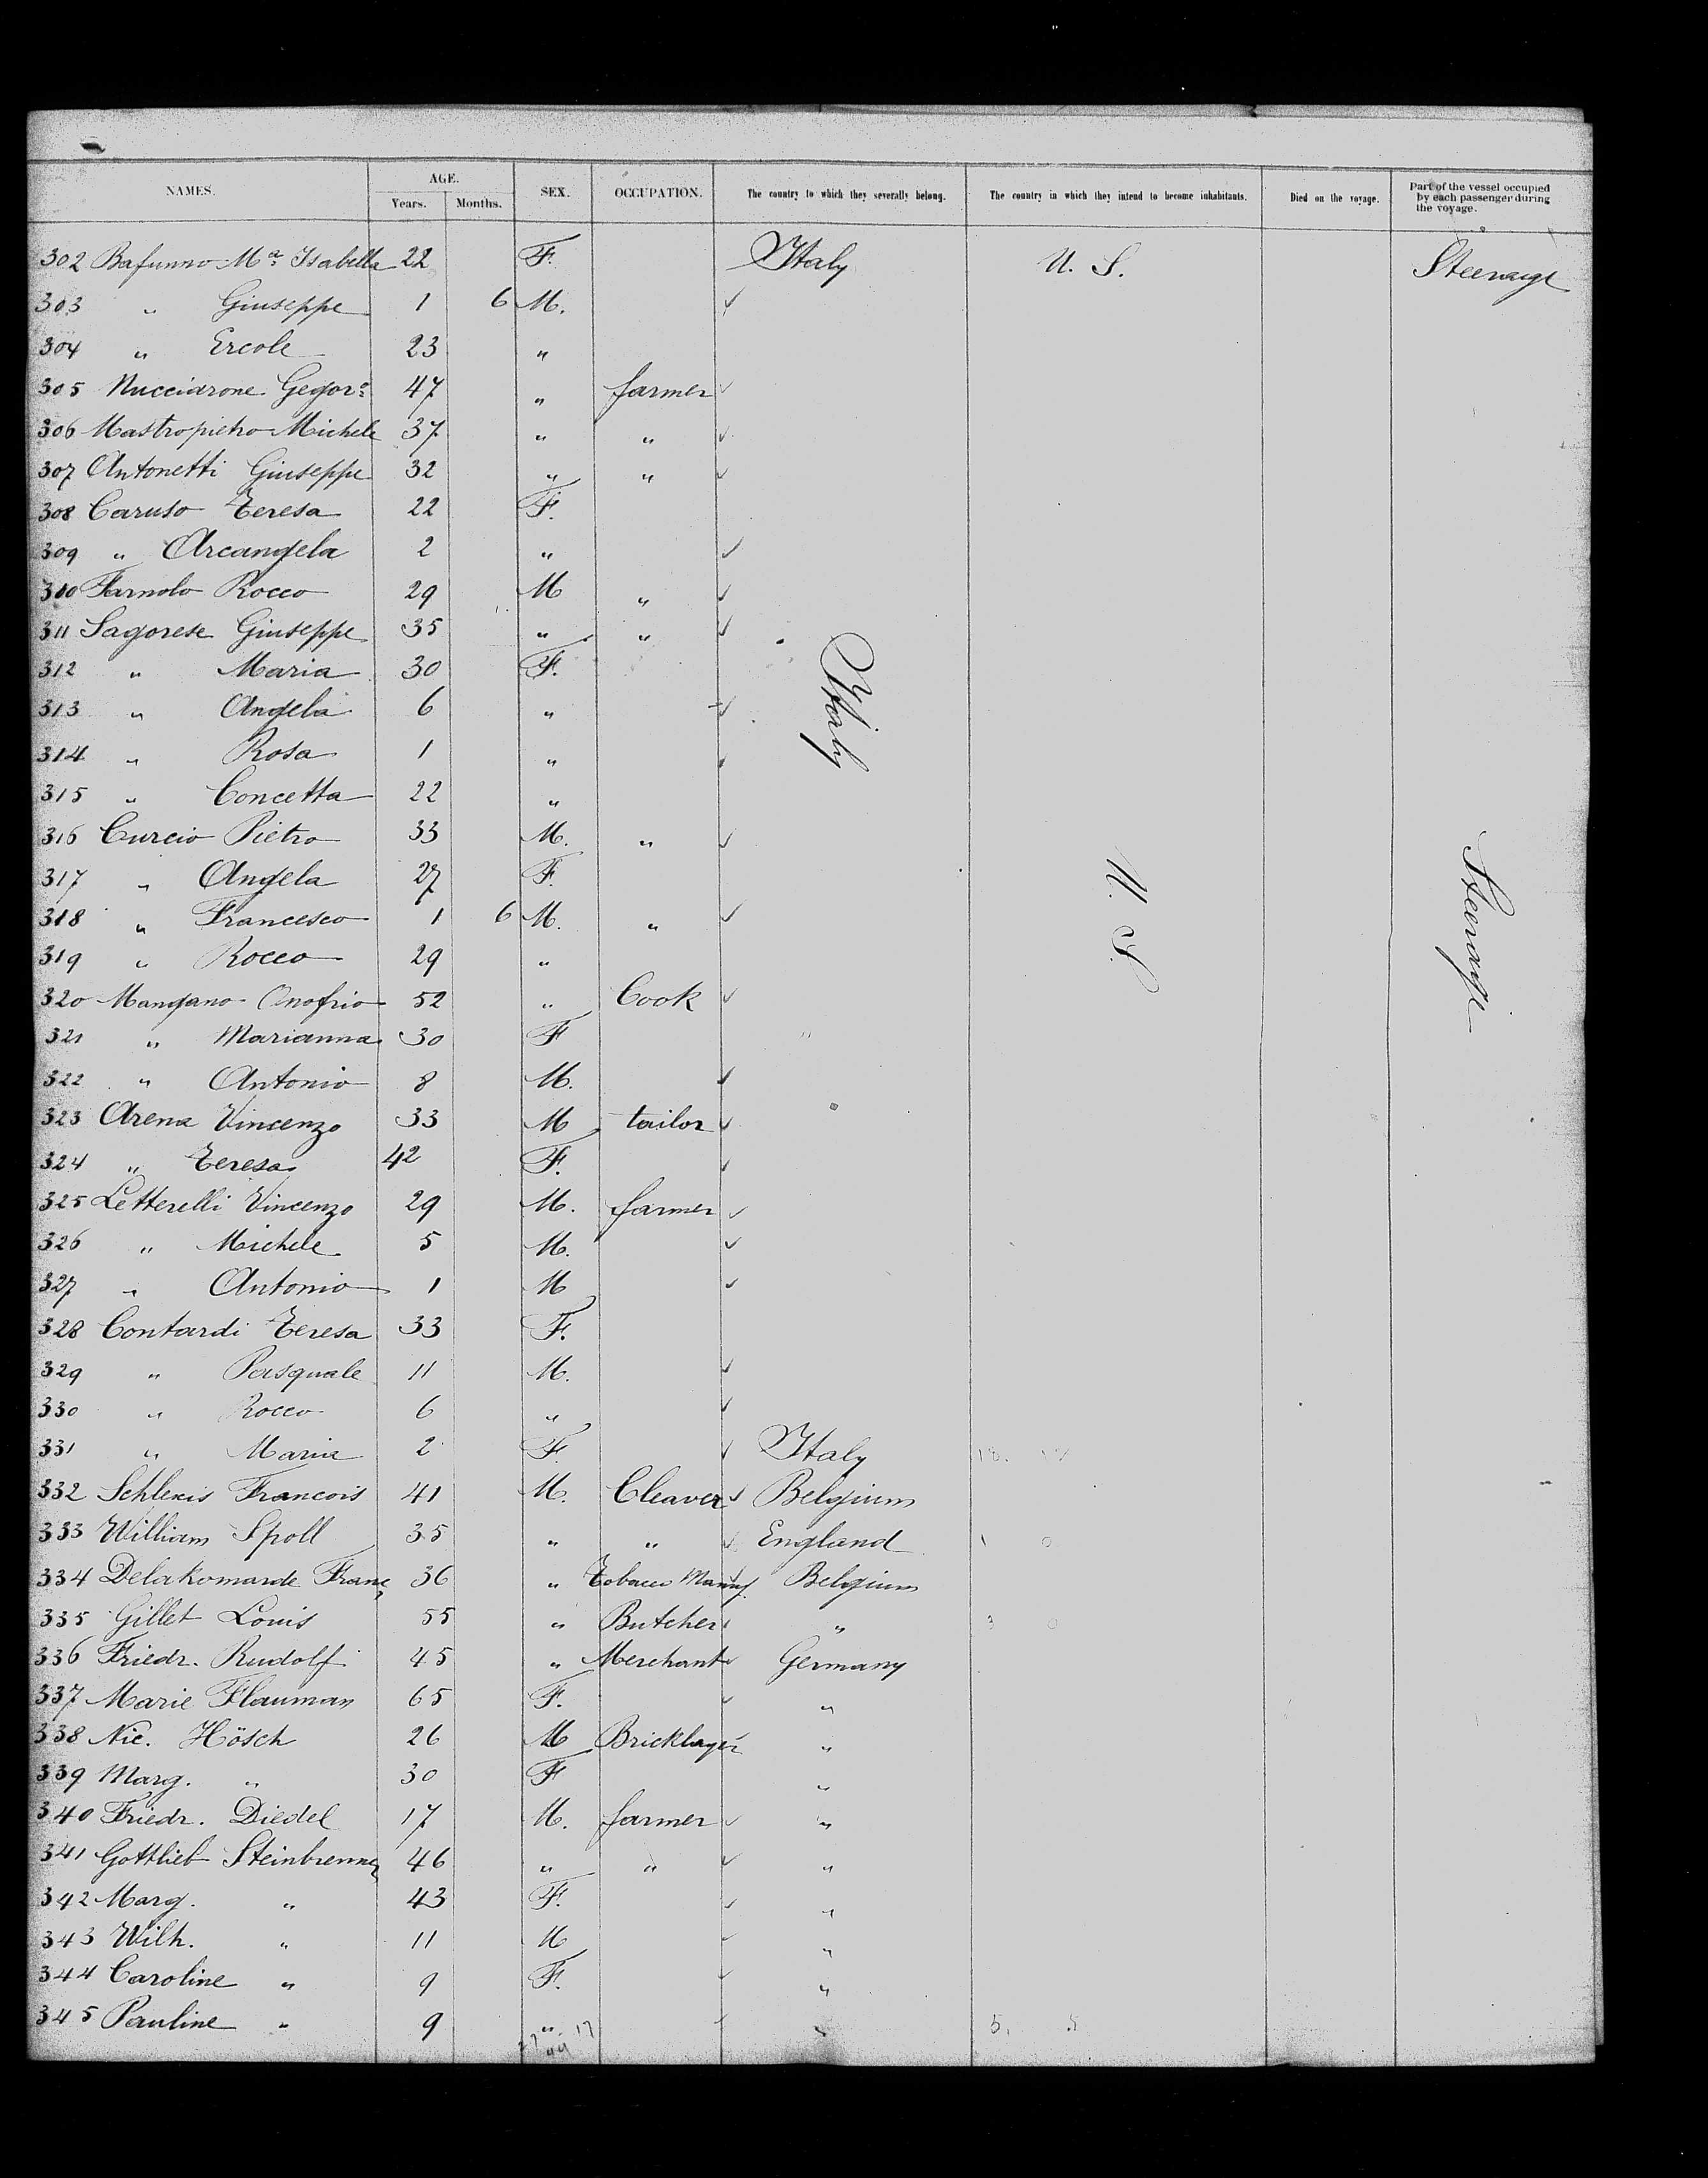 NAMES. AGE. SEX. OCCUPATION. The country to which they severally belong. The country in which they intend to become inhabitants. Died on the voyage. Part of the vessel occupied by each passenger during the voyage.
Years. Months.
302 Bafunno Mª Isabella 22 F. Italy U. S. Steerage
303 " Giuseppe 1 6 M.
304 " Ercole 23 "
305 Nucciarone Gegorº 47 " farmer
306 Mastropietro Michele 37 " "
307 Antonetti Giuseppe 32 " "
308 Caruso Teresa 22 F.
309 " Arcangela 2 "
310 Farnolo Rocco 29 M "
311 Sagorese Giuseppe 35 " "
312 " Maria 30 F.
313 " Angela 6 " Italy
314 " Rosa 1 "
315 " Concetta 22 "
316 Curcio Pietro 33 M. "
317 " Angela 27 F.
318 " Francesco 1 6 M. " U. S. Steerage
319 " Rocco 29 "
320 Mangano Onofrio 52 " Cook
321 " Marianna 30 F
322 " Antonio 8 M.
323 Arena Vincenzo 33 M tailor
324 " Teresa 42 F.
325 Letterelli Vincenzo 29 M. farmer
326 " Michele 5 M.
327 " Antonio 1 M
328 Contardi Teresa 33 F.
329 " Pasquale 11 M.
330 " Rocco 6 "
331 " Maria 2 F. Italy
332 Schlexis Francois 41 M. Cleaver Belgium
333 William Spoll 35 " " England 1 0
334 Delakomarde Franç 36 " Tobacco Manuf. Belgium
335 Gillet Louis 55 " Butcher " 3 0
336 Friedr. Rudolf 45 " Merchant Germany
337 Marie Flauman 65 F. "
338 Nic. Hösch 26 M Bricklayer "
339 Marg. " 30 F "
340 Friedr. Diedel 17 M. farmer "
341 Gottlieb Steinbrenner 46 " " "
342 Marg. " 43 F. "
343 Wilh. " 11 M "
344 Caroline " 9 F. "
345 Pauline " 9 " " 5. 5
27 17
44